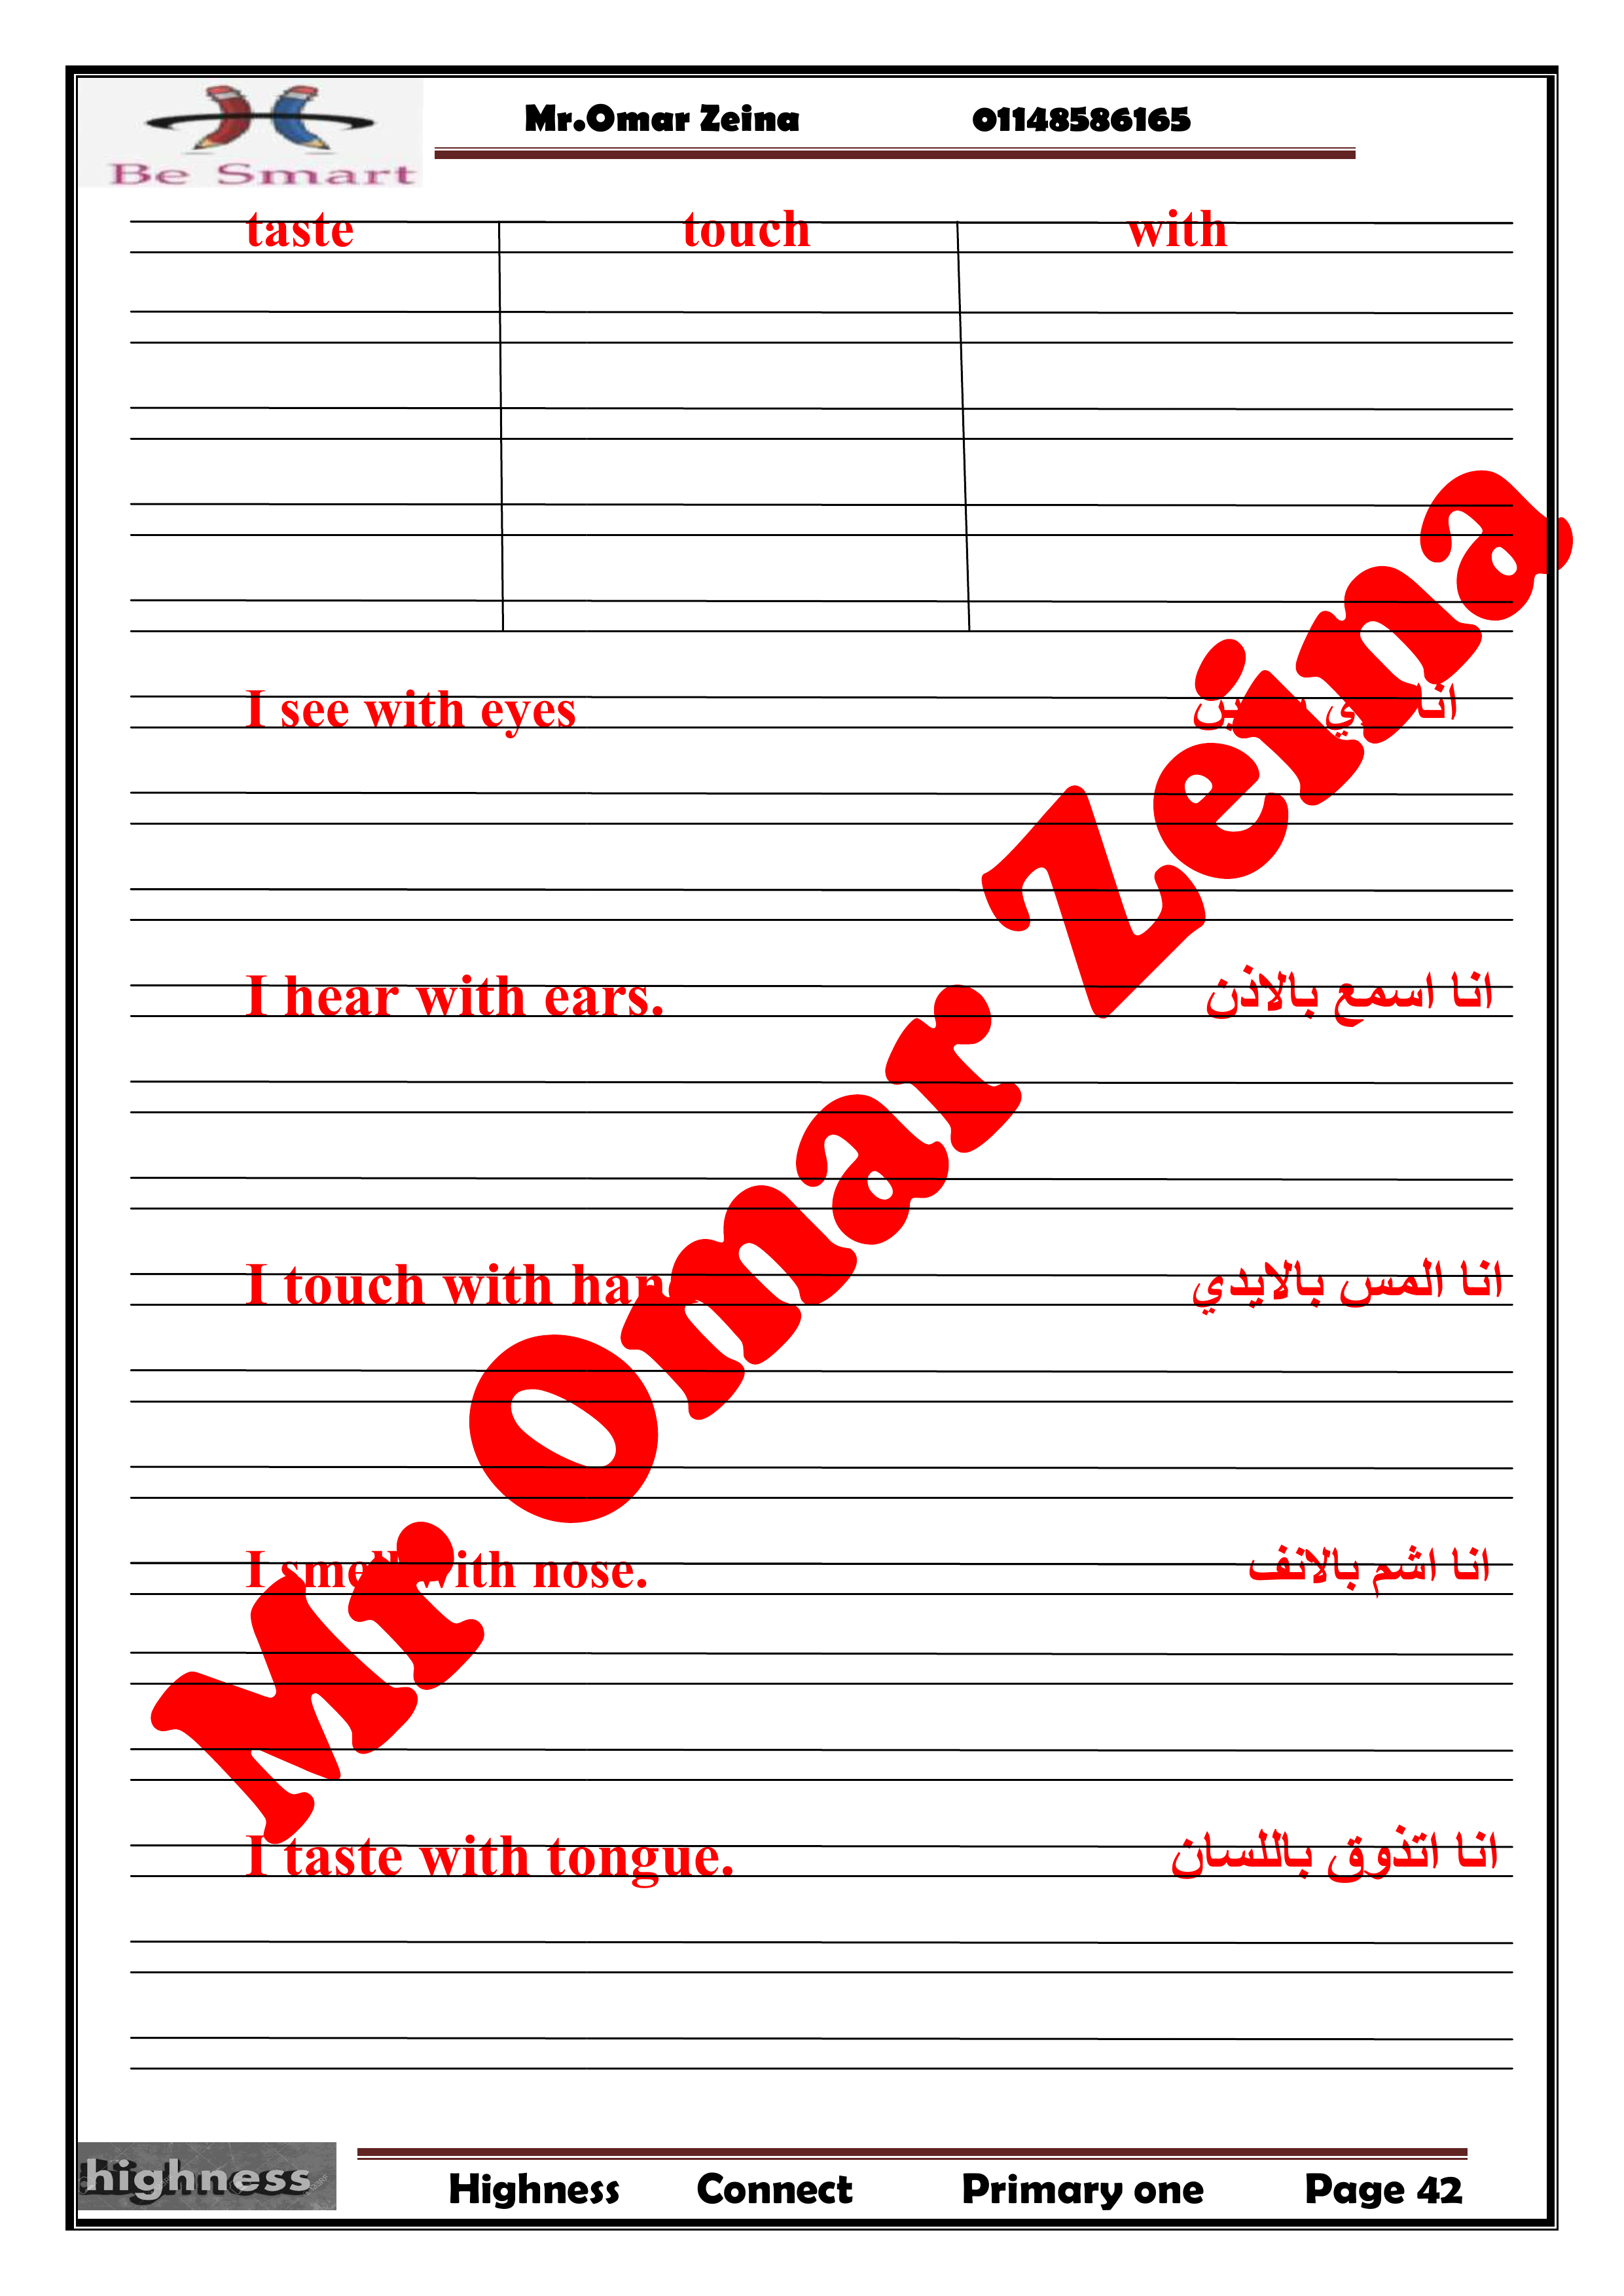 Be Smart
Mr.Omar Zeina 01148586165
taste touch with
I see with eyes انا
I hear with ears. انا اسمع بالاذن
I touch with انا المس بالايدي
I smell with nose. انا اشم بالانف
I taste with tongue. انا اتذوق باللسان
Mr Omar Zeina
highness
Highness Connect Primary one Page 42